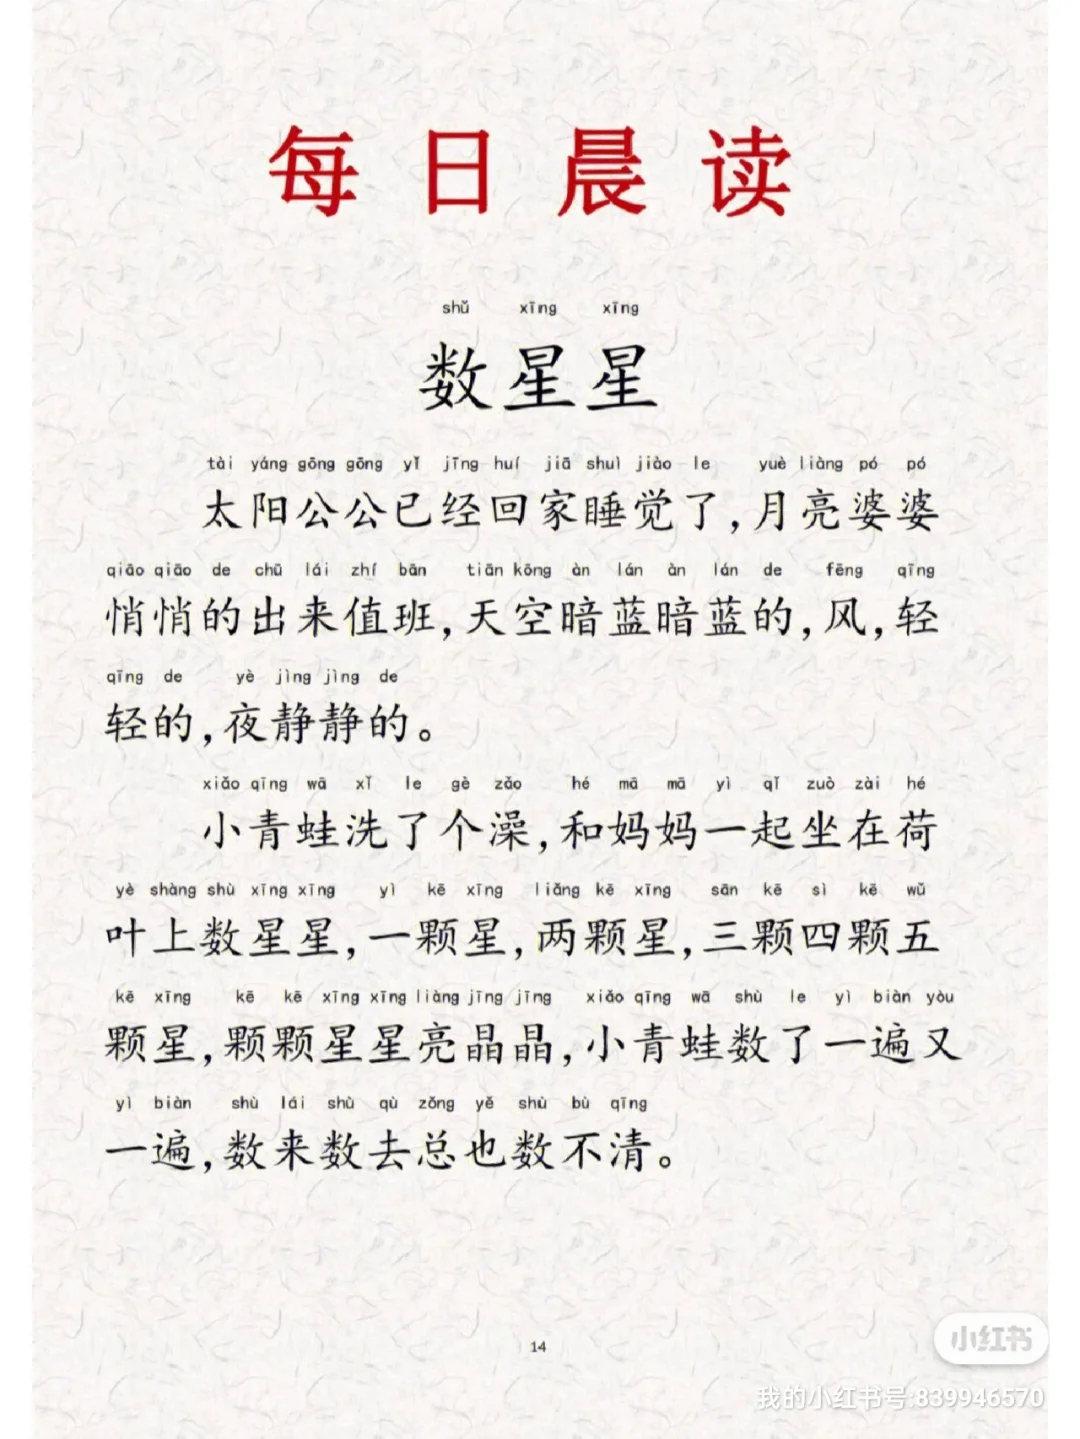 每日晨读
shǔ xīng xīng
数星星
tài yáng gōng gōng yǐ jīng huí jiā shuì jiào le yuè liàng pó pó
太阳公公已经回家睡觉了,月亮婆婆
qiāo qiāo de chū lái zhí bān tiān kōng àn lán àn lán de fēng qīng
悄悄的出来值班,天空暗蓝暗蓝的,风,轻
qīng de yè jìng jìng de
轻的,夜静静的。
xiǎo qīng wā xǐ le gè zǎo hé mā mā yì qǐ zuò zài hé
小青蛙洗了个澡,和妈妈一起坐在荷
yè shàng shù xīng xīng yì kē xīng liǎng kē xīng sān kē sì kē wǔ
叶上数星星,一颗星,两颗星,三颗四颗五
kē xīng kē kē xīng xīng liàng jīng jīng xiǎo qīng wā shù le yì biàn yòu
颗星,颗颗星星亮晶晶,小青蛙数了一遍又
yì biàn shù lái shù qù zǒng yě shù bù qīng
一遍,数来数去总也数不清。
14
小红书
我的小红书号:839946570